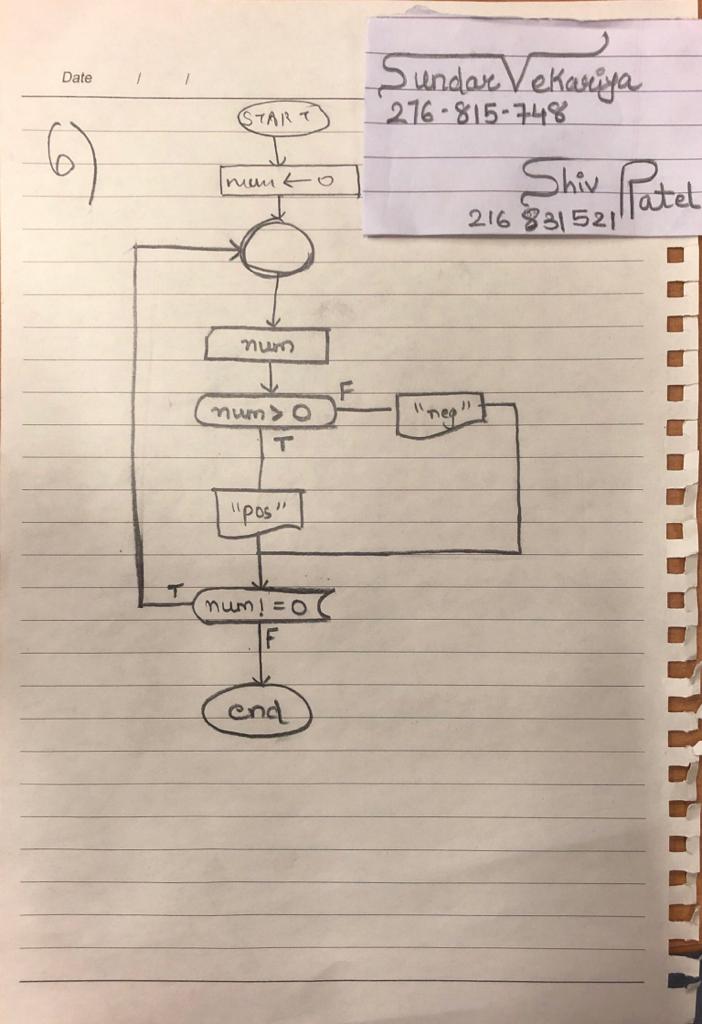 Date / /
Sundar Vekariya
216-815-748
Shiv Patel
216 831521
6)
START
num ← 0
num
num > 0
F
"neg"
T
"pos"
T
num! = 0
F
end